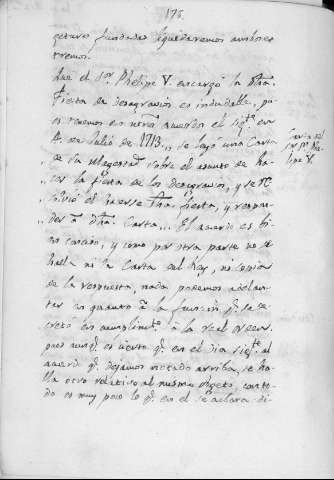 175.
fundada quedaremos ambos es
tremos.
Que el Sor. Phelipe V. encargó la dha.
Fiesta de desagravios es indudable, pu
es tenemos en uno acuerdo el sigte. en
4. de Julio de 1713 „ se leyó una Carta
„ de Su Magestad sobre el asunto de ha
„ cer la fiesta de los desagravios, y se re
„ solvió el hacerse dha. fiesta, y respon
„ der a dha. Carta... El acuerdo es bi
en conciso, y como por otra parte no se
halla ni la Carta del Rey, ni copia
de la respuesta, nada podemos adelan
tar en quanto à la función qe. se de
cretó en cumplimto. à la real orden.
pues aunqe. es cierto qe. en el dia sigte. al
acuerdo qe. dejamos citado arriba, se ha
lla otro relativo al mismo objeto, con to
do es muy poco lo qe. en el se aclara di-
Carta del
Sr. Dn. Phe
lipe V.